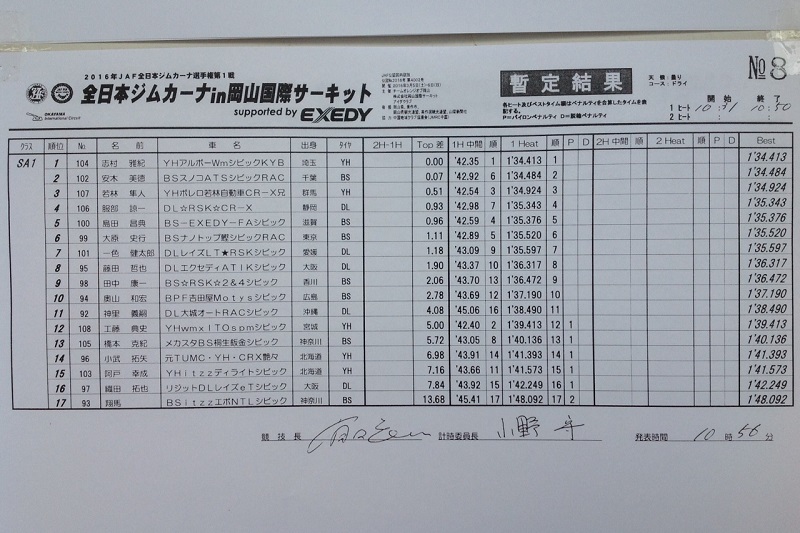 2016年JAF全日本ジムカーナ選手権第1戦
全日本ジムカーナin岡山国際サーキット
supported by EXEDY
OKAYAMA International Circuit
暫定結果
天候:曇り
コース:ドライ
№8
各ヒート及びベストタイム欄はペナルティを合算したタイムを表記する。
P=パイロンペナルティ D=脱輪ペナルティ
開始 終了
1ヒート 10:31 10:50
2ヒート :
クラス 順位 No. 名前 車名 出身 タイヤ 2H-1H Top差 1H中間 順 1 Heat 順 P D 2H中間 順 2 Heat 順 P D Best
SA1 1 104 志村 雅紀 YHアルボーWmシビックKYB 埼玉 YH 0.00 '42.35 1 1'34.413 1 1'34.413
2 102 安木 美徳 BSスノコATSシビックRAC 千葉 BS 0.07 '42.92 6 1'34.484 2 1'34.484
3 107 若林 隼人 YHボレロ若林自動車CR-X兄 群馬 YH 0.51 '42.63 5 1'34.924 3 1'34.924
4 106 服部 諒一 DL☆RSK☆CR-X 静岡 DL 0.93 '42.98 7 1'35.343 4 1'35.343
5 100 島田 昌典 BS-EXEDY-FAシビック 滋賀 BS 0.96 '42.59 4 1'35.376 5 1'35.376
6 99 大原 史行 BSナノトップ鰹シビックRAC 東京 BS 1.11 '42.89 5 1'35.520 6 1'35.520
7 101 一色 健太郎 DLレイズLT★RSKシビック 愛媛 DL 1.18 '43.09 9 1'35.597 7 1'35.597
8 95 藤田 哲也 DLエクセディATIKシビック 大阪 DL 1.90 '43.37 10 1'36.317 8 1'36.317
9 98 田中 康一 BS☆RSK☆2&4シビック 香川 BS 2.06 '43.70 13 1'36.472 9 1'36.472
10 94 奥山 和宏 BPF吉田屋Motysシビック 広島 BS 2.78 '43.69 12 1'37.190 10 1'37.190
11 92 神里 義嗣 DL大城オートRACシビック 沖縄 DL 4.08 '45.06 16 1'38.490 11 1'38.490
12 108 工藤 典史 YHwmxITOspmシビック 宮城 YH 5.00 '42.40 2 1'39.413 12 1 1'39.413
13 105 橋本 克紀 メカスタBS桐生鈑金シビック 神奈川 BS 5.72 '43.05 8 1'40.136 13 1 1'40.136
14 96 小武 拓矢 元TUMC・YH・CRX艶々 北海道 YH 6.98 '43.91 14 1'41.393 14 1 1'41.393
15 103 阿戸 幸成 YHitzzディライトシビック 北海道 YH 7.16 '43.66 11 1'41.573 15 1 1'41.573
16 97 織田 拓也 リジットDLレイズeTシビック 大阪 DL 7.84 '43.92 15 1'42.249 16 1 1'42.249
17 93 翔馬 BSitzzエボNTLシビック 神奈川 BS 13.68 '45.41 17 1'48.092 17 2 1'48.092
競技長 計時委員長 小野 守 発表時間 10時56分